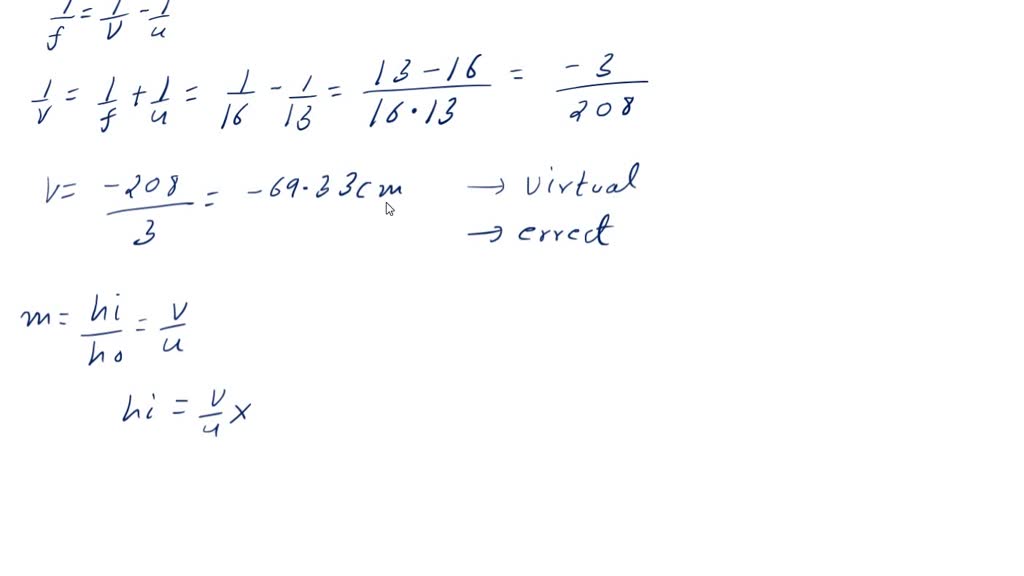 1/f = 1/v - 1/u
1/v = 1/f + 1/u = 1/16 - 1/13 = 13-16/16·13 = -3/208
v = -208/3 = -69.33cm → virtual
→ errect
m = hi/ho = v/u
hi = v/u x